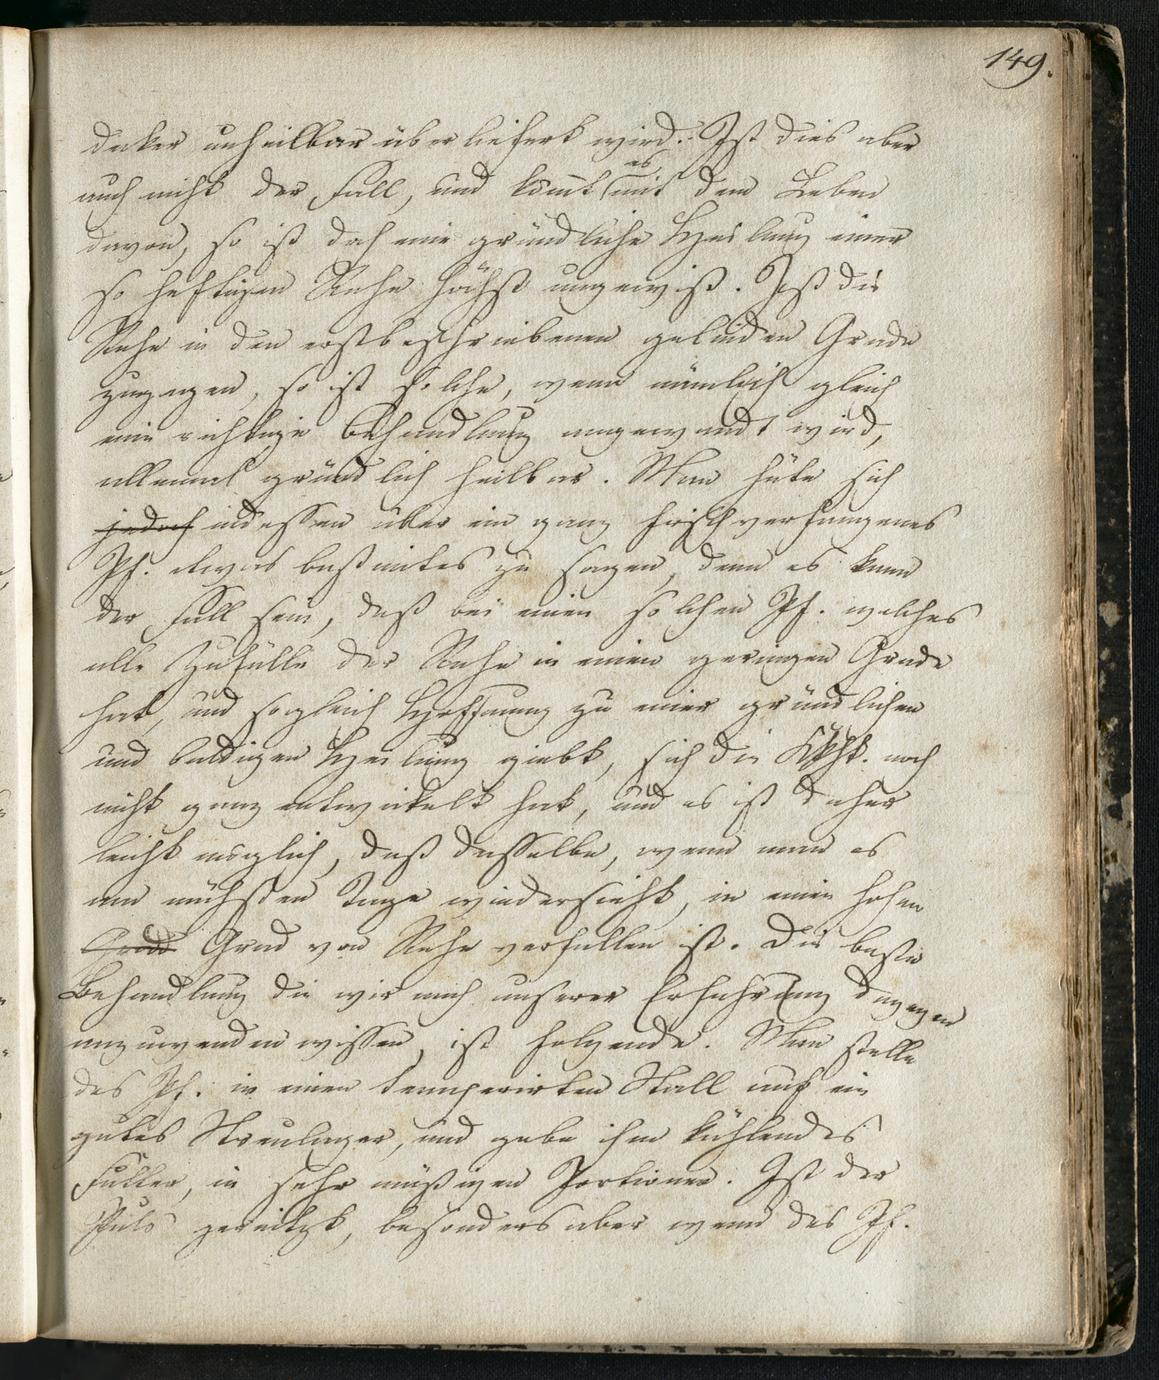 149.
decker unheilbar überliefert wird. Ist dies aber
auch nicht der Fall, und kommt es mit dem Leben
davon, so ist doch eine gründliche Heilung einer
so heftigen Rehe höchst ungewiß. Ist die
Rehe in den erstbeschriebenen gelinden Grade
zugegen, so ist solche, wenn nämlich gleich
eine richtige Behandlung angewandt wird,
allemal gründlich heilbar. Man hüte sich
jedoch indessen über ein ganz frisch verfangenes
Pf. etwas bestimtes zu sagen, denn es kann
der Fall sein, daß bei einen solchen Pf. welches
alle Zufälle der Rehe in einen geringen Grade
hat, und sogleich Hoffnung zu einer gründlichen
und baldigen Heilung giebt, sich die Kkht. noch
nicht ganz entwickelt hat, und es ist daher
leicht möglich, daß dasselbe, wenn man es
am nächsten Tage wiedersieht, in einen hohen
Grad Grad von Rehe verfallen ist. Die beste
Behandlung die wir nach unserer Erfahrung dagegen
anzuwenden wissen, ist folgende. Man stelle
das Pf. in einen temperirten Stall auf ein
gutes Streulager, und gebe ihm kühlendes
Futter, in sehr mäßigen Portionen. Ist der
Puls gereitzt, besonders aber wenn das Pf.